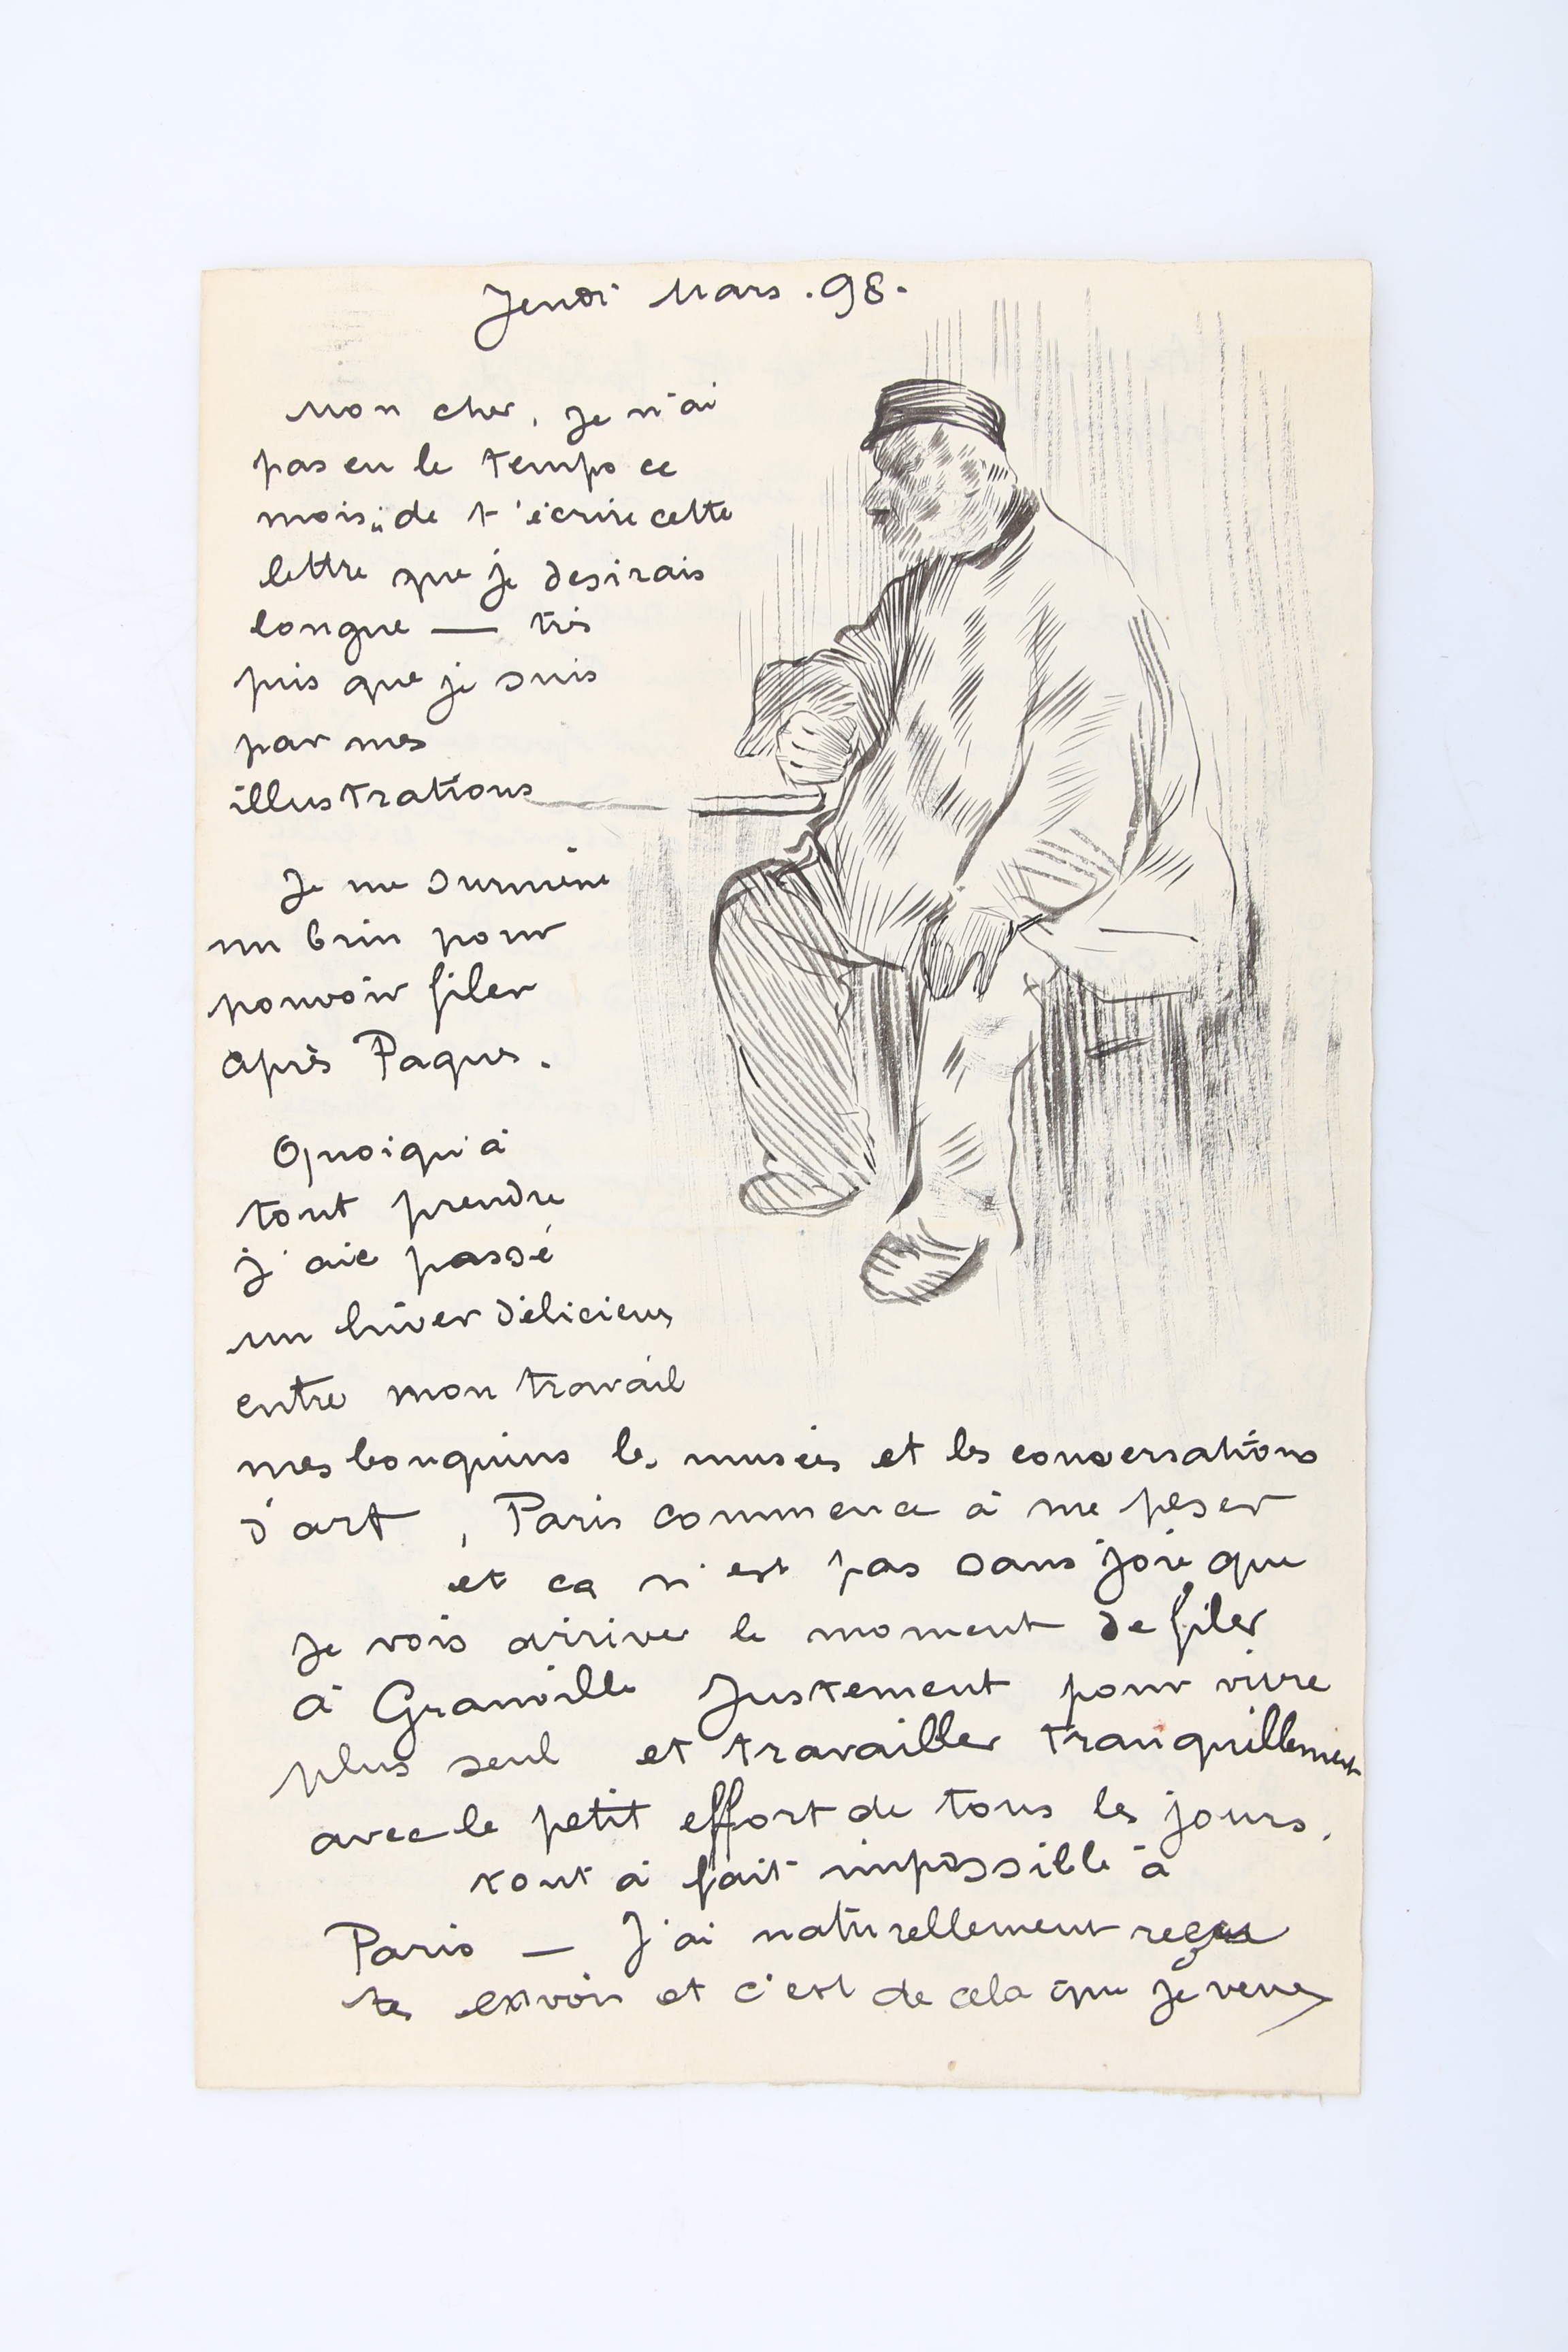 Jeudi Mars . 98 .
Mon cher, je n'ai
pas eu le temps ce
mois, de t'écrire cette
lettre que je desirais
longue — très
pris que je suis
par mes
illustrations
Je me surmène
un brin pour
pouvoir filer
après Paques .
Quoiqu'à
tout prendre
j'aie passé
un hiver délicieux
entre mon travail
mes bouquins les musées et les conversations
d'art , Paris commence à me peser
et ca n'est pas sans joie que
je vois arriver le moment de filer
à Granville Justement pour vivre
plus seul et travailler tranquillement
avec le petit effort de tous les jours .
tout à fait impossible à
Paris — J'ai naturellement reçu
tes envois et c'est de cela que je veux